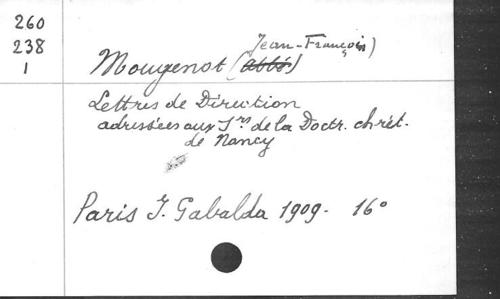 260
238
1
Jean-François)
Mougenot (Abbé)
Lettres de Direction
adressées aux Frs de la Doctr. chrét.
de Nancy
Paris J. Gabalda 1909. 16°